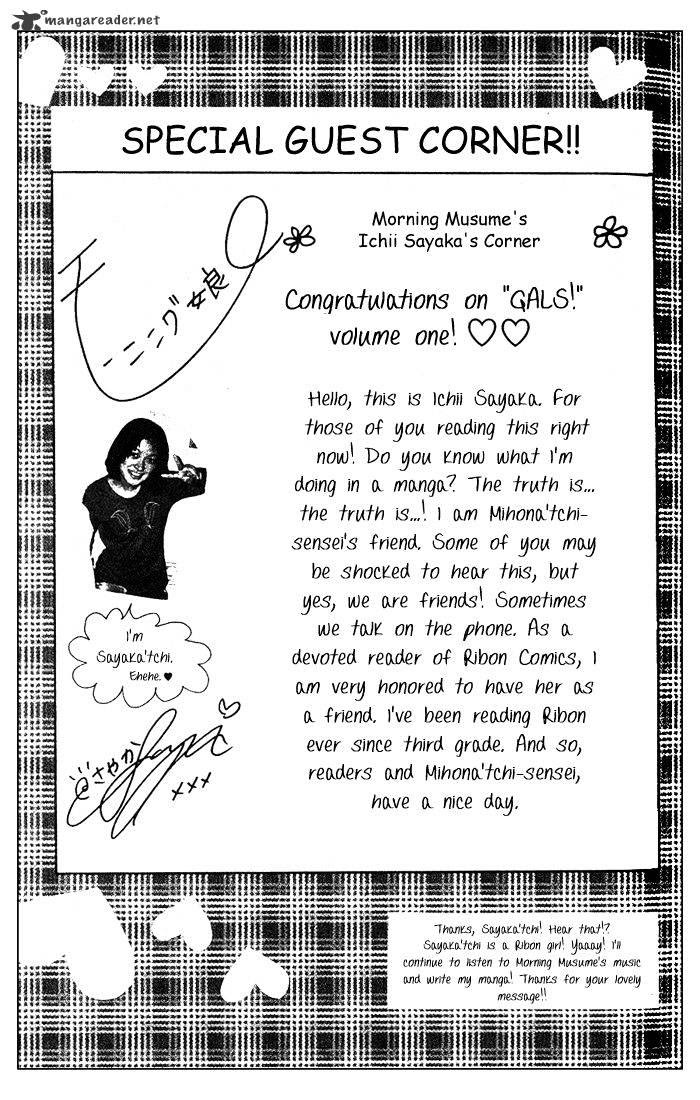 mangareader.net
SPECIAL GUEST CORNER!!
Morning Musume's
Ichii Sayaka's Corner
Congratulations on "GALS!"
volume one! ♡♡
Hello, this is Ichii Sayaka. For
those of you reading this right
now! Do you know what I'm
doing in a manga? The truth is...
the truth is...! I am Mihona'tchi-
sensei's friend. Some of you may
be shocked to hear this, but
yes, we are friends! Sometimes
we talk on the phone. As a
devoted reader of Ribon Comics, I
am very honored to have her as
a friend. I've been reading Ribon
ever since third grade. And so,
readers and Mihona'tchi-sensei,
have a nice day.
モーニング娘
I'm
Sayaka'tchi.
Ehehe. ♥
さやか
xxx
Thanks, Sayaka'tchi! Hear that!?
Sayaka'tchi is a Ribon girl! Yaaay! I'll
continue to listen to Morning Musume's music
and write my manga! Thanks for your lovely
message!!